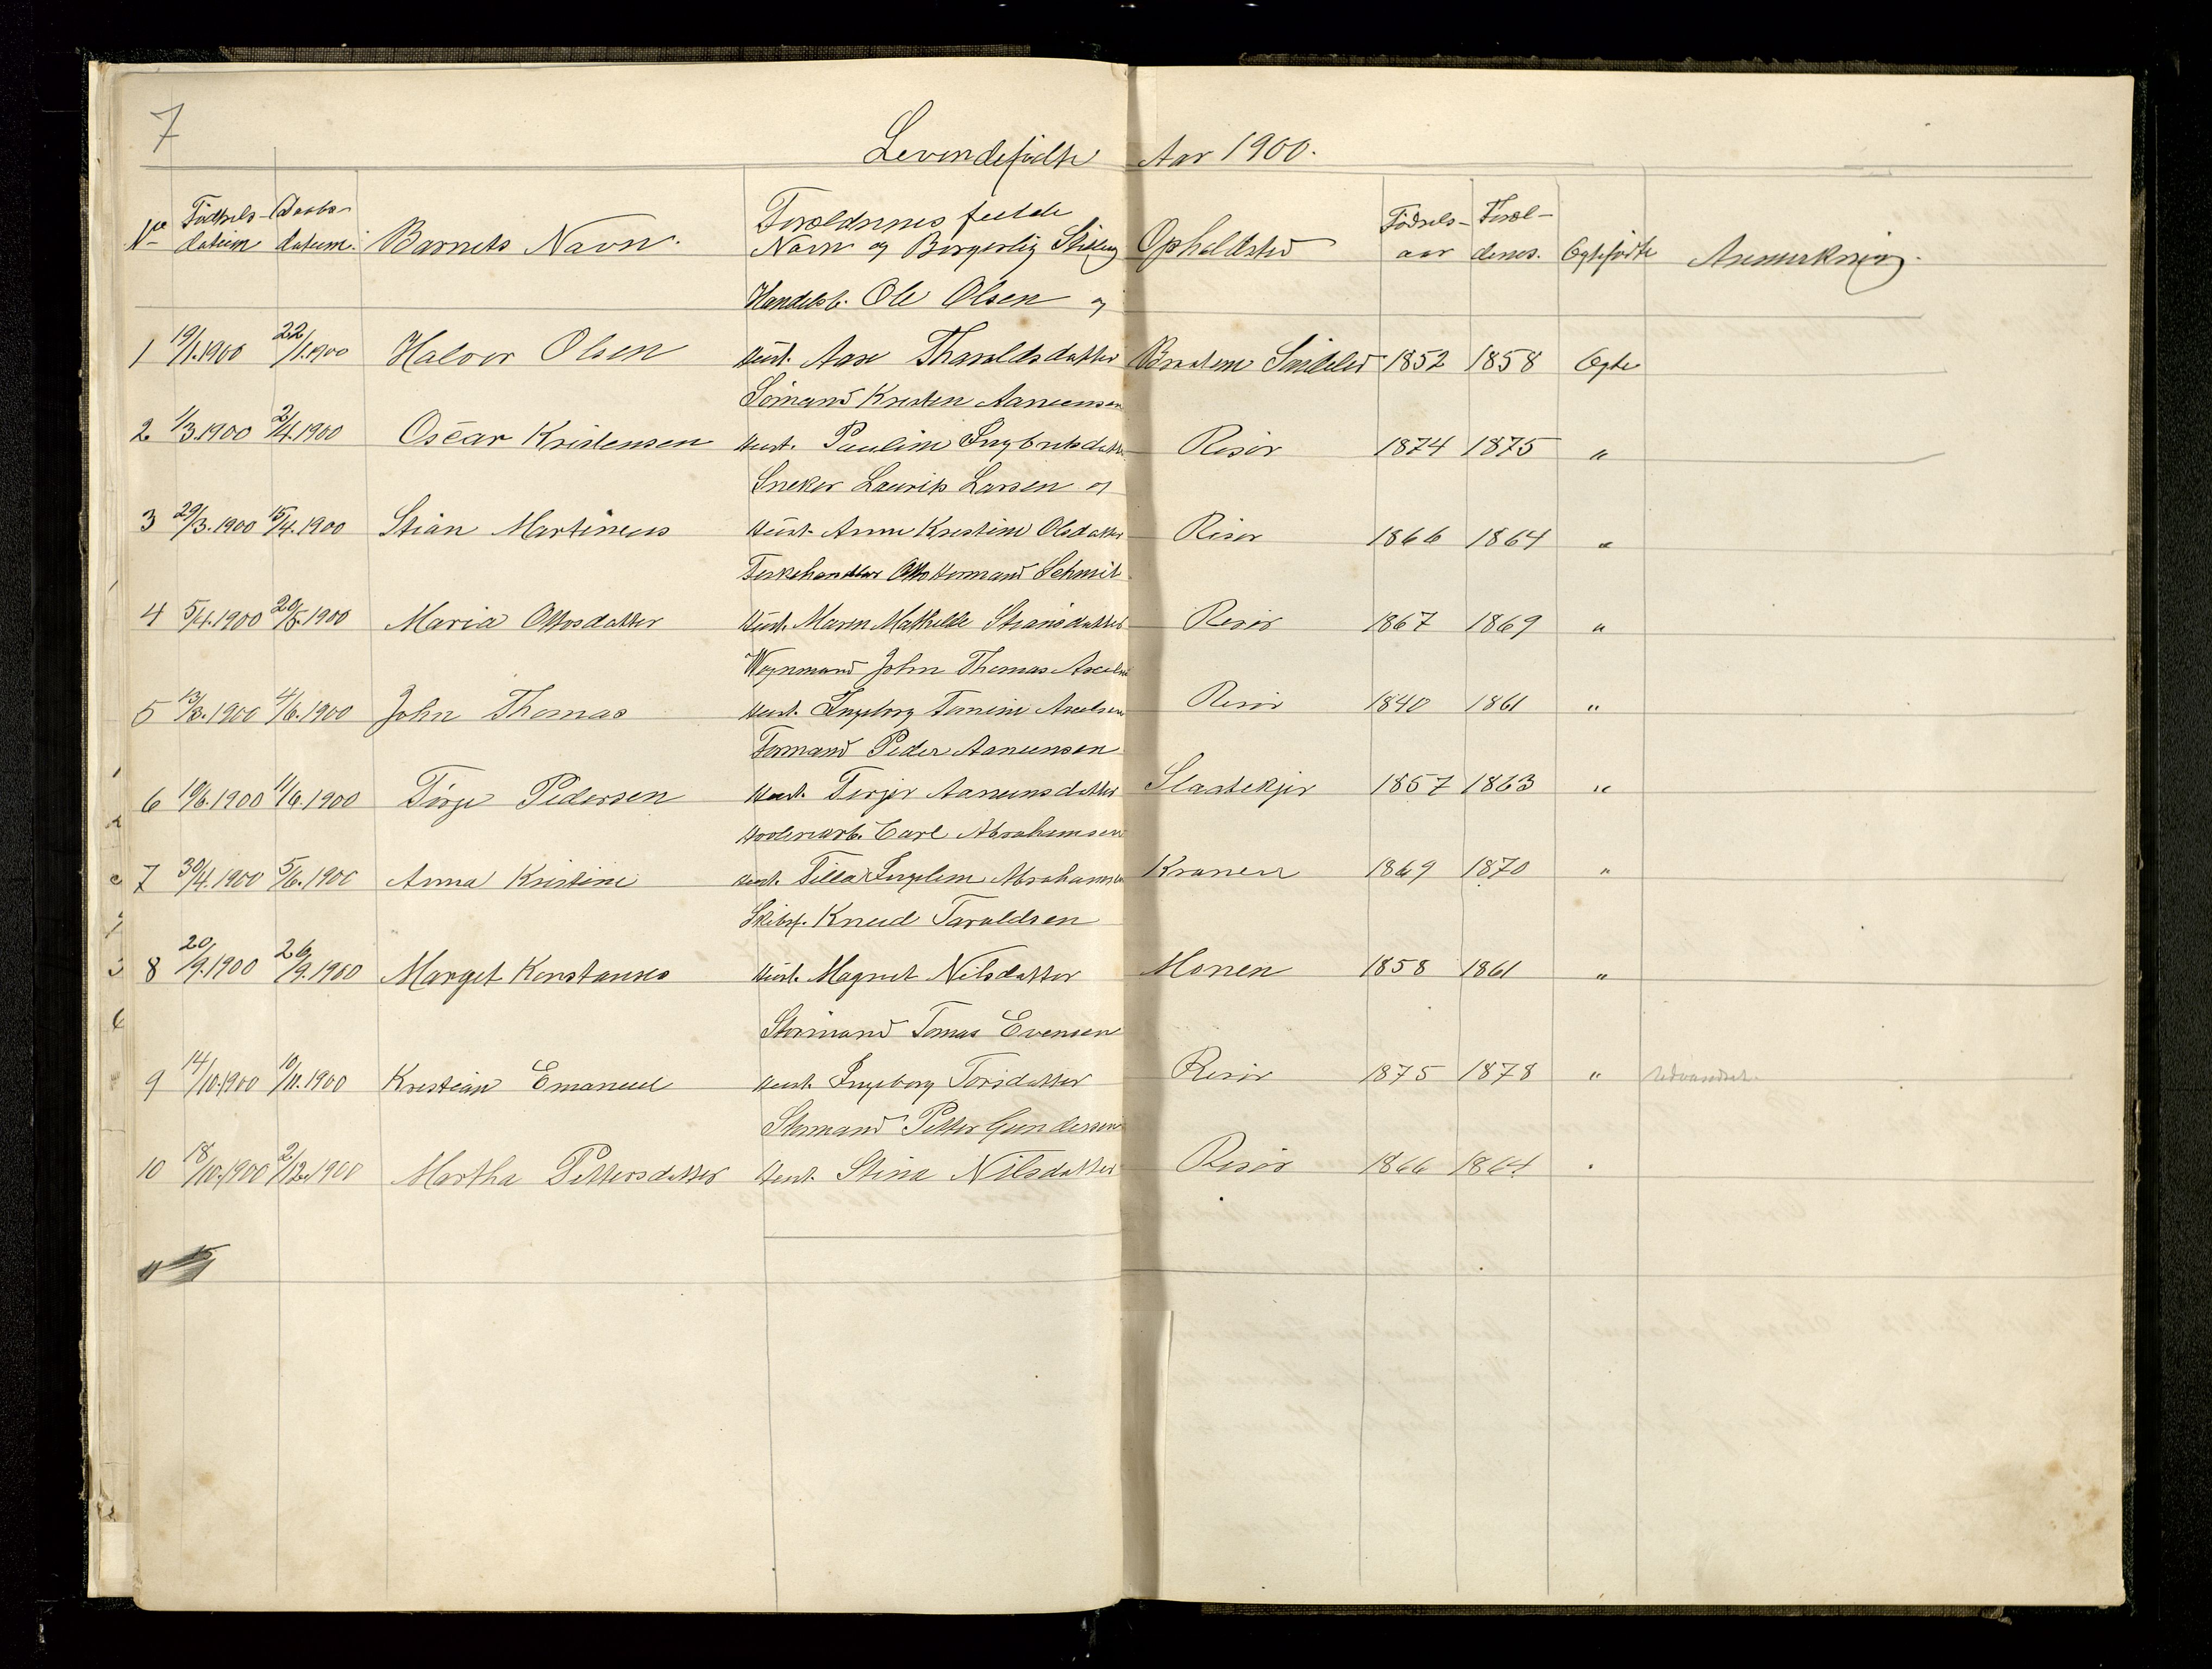 7
Levendefødte Aar 1900.
No Fødsels- datum Daabs- datum. Barnets Navn. Forældrenes fulde Navn og Borgerlig Stilling Opholdsted Fødsels- aar Foræl- drenes. Egtefødte Anmerkning.
Handelsb. Ole Olsen og
1 19/1.1900 22/1.1900 Halvor Olsen Hust. Aase Tharaldsdatter Braaten Søndeled 1852 1858 Egte
Sømand Kristen Aanensen
2 1/3.1900 2/4.1900 Oscar Kristensen Hust. Pauline Ingbretsdatter Risør 1874 1875 "
Sneker Laurits Larsen og
3 29/3.1900 15/4.1900 Stian Martineus Hust. Anne Kristine Olsdatter Risør 1866 1864 "
Fiskehandler Otto Hermand Schmit
4 5/4.1900 20/5.1900 Maria Ottosdatter Hust. Maren Mathilde Stiansdatter Risør 1867 1869 "
Vognmand John Thomas Axelsen
5 13/3.1900 4/6.1900 John Thomas Hust. Ingeborg Tomine Axelsen Risør 1840 1861 "
Formand Peder Aanensen
6 10/6.1900 11/6.1900 Tørje Pedersen Hust. Terjer Aanensdatter Slaatekjer 1857 1863 "
Carl Abrahamsen
7 30/4.1900 5/6.1900 Anna Kristine Hust. Tilla Ingeline Abrahamsen Kranen 1869 1870 "
Skibsf. Knud Taraldsen
8 20/9.1900 26/9.1900 Marget Konstanse Hust. Magnet Nilsdatter Monen 1858 1861 "
Stormand Tomas Evensen
9 14/10.1900 10/11.1900 Kristian Emanuel Hust. Ingeborg Torsdatter Risør 1875 1878 "
Stormand Petter Gundersen
10 18/10.1900 2/12.1900 Martha Pettersdatter Hust. Stina Nilsdatter Risør 1866 1864 "
11